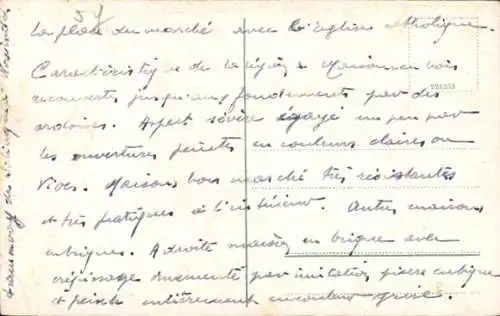 La place du marché avec l'église catholique.
Caractéristique de la région Maisons en bois
recouvertes jusqu'aux fondements par des
ardoises. Aspect sévère égayé un peu par
les ouvertures peintes en couleurs claires ou
vives. Maisons bon marché très résistantes
et très pratiques à l'intérieur. Autres maisons
en briques. A droite maison en brique avec
crépissage ornementé par imitation pierre
et peinte entièrement en couleur grise.